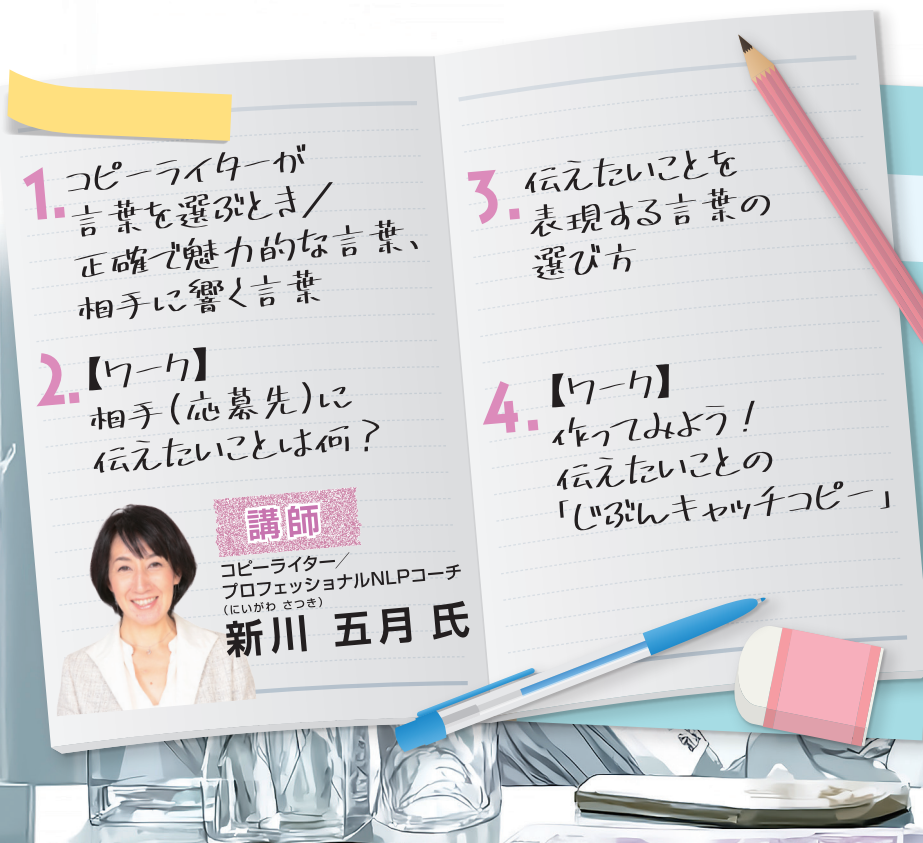 1. コピーライターが
言葉を選ぶとき／
正確で魅力的な言葉、
相手に響く言葉
2. 【ワーク】
相手(応募先)に
伝えたいことは何？
講師
コピーライター／
プロフェッショナルNLPコーチ
(にいがわ さつき)
新川 五月 氏
3. 伝えたいことを
表現する言葉の
選び方
4. 【ワーク】
作ってみよう！
伝えたいことの
「じぶんキャッチコピー」